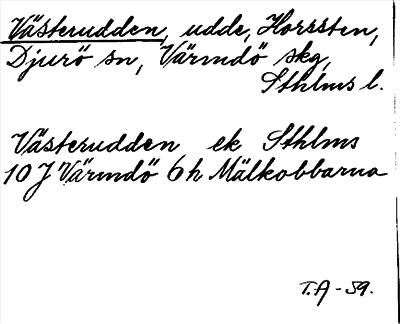 Västerudden, udde, Horssten,
Djurö sn, Värmdö skg,
Sthlms l.
Västerudden ek Sthlms
10 J Värmdö 6 h Mälkobbarna
T.A-59.